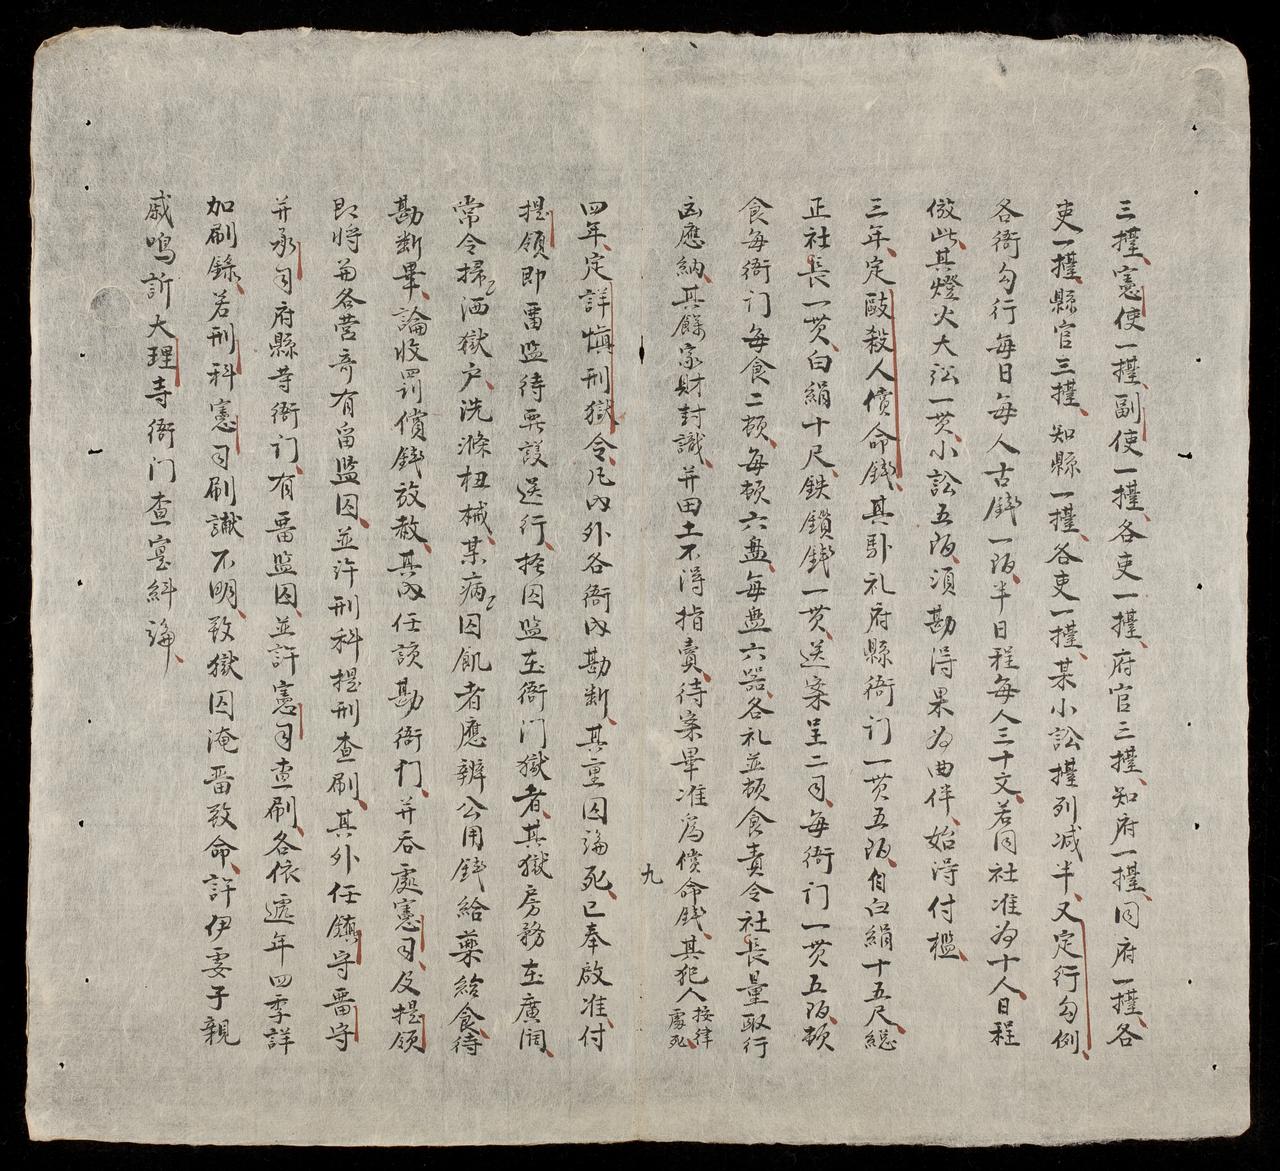 三擡、憲使一擡、副使一擡、各吏一擡、府官三擡、知府一擡、同府一擡、各
吏一擡、縣官三擡、知縣一擡、各吏一擡、某小訟擡列减半、又定行勾例、
各衙勾行每日每人古錢一陌、半日程每人三十文、若同社准为十人日程
倣此、其燈火大訟一貫、小訟五陌、須勘得果为曲伴、始得付檻、
三年、定毆殺人償命錢、其卧礼府縣衙门一貫五陌、自白絹十五尺、総
正社長一貫、白絹十尺、鉄鎖錢一貫、送案呈二司、每衙门一貫五陌、頓
食每衙门每食二頓、每頓六盘、每盘六器、各礼並頓食責令社長量取行
凶應納、其餘家財封識、并田土不得指賣、待案畢准為償命錢、其犯人按律處死、
九
四年、定詳慎刑獄令、凡内外各衙内勘断、其重囚論死、已奉啟准、付
提領即畱监待要、護送行、拴囚监在衙门獄者、其獄房務在廣濶、
常令掃洒獄户、洗滌杻械、某病囚飢者應辨公用錢給藥給食、待
勘断畢、論收罰償錢放赦、其内任該勘衙门、并吞處憲司、及提領
即将為各营奇有畱监囚、並許刑科提刑查刷、其外任鎮守畱守
并承司府縣寺衙门、有畱监囚、並許憲司查刷、各依遞年四季詳
加刷錄、若刑科憲司刷讞不明、致獄囚淹畱致命、許伊妻子親
戚鳴訴大理寺衙门查寔糾論、